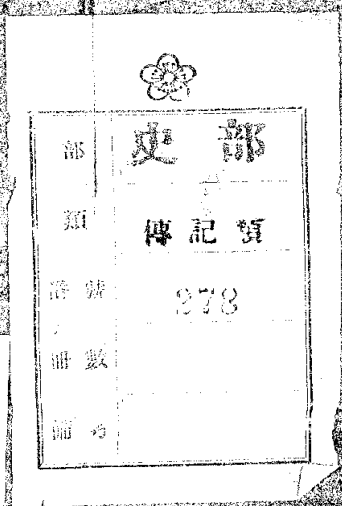 部 史部
類 傳記類
號 278
冊數
備考